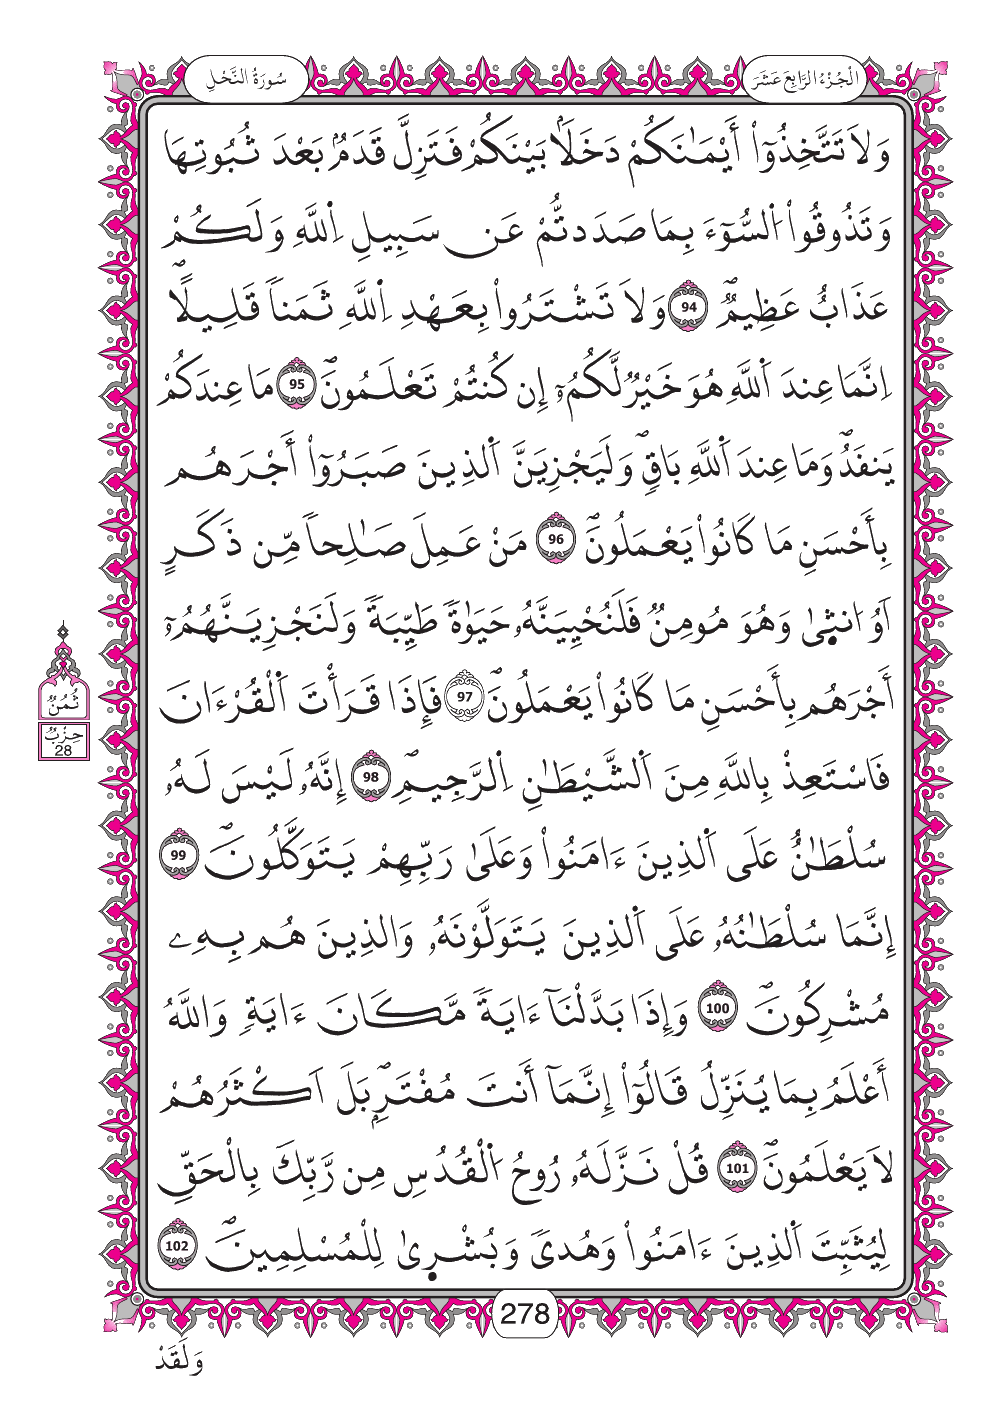 سُورَةُ النَّحْلِ
الْجُزْءُ الرَّابِعَ عَشَرَ
وَلَا تَتَّخِذُوٓاْ أَيْمَٰنَكُمْ دَخَلَاۢ بَيْنَكُمْ فَتَزِلَّ قَدَمٌۢ بَعْدَ ثُبُوتِهَا
وَتَذُوقُواْ اُ۬لسُّوٓءَ بِمَا صَدَدتُّمْ عَن سَبِيلِ اِ۬للَّهِ وَلَكُمْ
عَذَابٌ عَظِيمٌۖ 94 وَلَا تَشْتَرُواْ بِعَهْدِ اِ۬للَّهِ ثَمَناٗ قَلِيلاًۖ
اِنَّمَا عِندَ اَ۬للَّهِ هُوَ خَيْرٞ لَّكُمُۥٓ إِن كُنتُمْ تَعْلَمُونَۖ 95 مَا عِندَكُمْ
يَنفَدُۖ وَمَا عِندَ اَ۬للَّهِ بَاقٖۖ وَلَيَجْزِيَنَّ اَ۬لذِينَ صَبَرُوٓاْ أَجْرَهُم
بِأَحْسَنِ مَا كَانُواْ يَعْمَلُونَۖ 96 مَنْ عَمِلَ صَٰلِحاٗ مِّن ذَكَرٍ
اَوُ ا۟نث۪يٰ وَهُوَ مُومِنٞ فَلَنُحْيِيَنَّهُۥ حَيَوٰةٗ طَيِّبَةٗ وَلَنَجْزِيَنَّهُمُۥٓ
أَجْرَهُم بِأَحْسَنِ مَا كَانُواْ يَعْمَلُونَۖ 97 فَإِذَا قَرَأْتَ اَ۬لْقُرْءَانَ
فَاسْتَعِذْ بِاللَّهِ مِنَ اَ۬لشَّيْطَٰنِ اِ۬لرَّجِيمِۖ 98 إِنَّهُۥ لَيْسَ لَهُۥ
سُلْطَٰنٌ عَلَى اَ۬لذِينَ ءَامَنُواْ وَعَلَىٰ رَبِّهِمْ يَتَوَكَّلُونَۖ 99
إِنَّمَا سُلْطَٰنُهُۥ عَلَى اَ۬لذِينَ يَتَوَلَّوْنَهُۥ وَالذِينَ هُم بِهِۦ
مُشْرِكُونَۖ 100 وَإِذَا بَدَّلْنَآ ءَايَةٗ مَّكَانَ ءَايَةٖ وَاللَّهُ
أَعْلَمُ بِمَا يُنَزِّلُ قَالُوٓاْ إِنَّمَآ أَنتَ مُفْتَرِۢۖ بَلَ اَكْثَرُهُمْ
لَا يَعْلَمُونَۖ 101 قُلْ نَزَّلَهُۥ رُوحُ اُ۬لْقُدُسِ مِن رَّبِّكَ بِالْحَقِّ
لِيُثَبِّتَ اَ۬لذِينَ ءَامَنُواْ وَهُدىٗ وَبُشْر۪يٰ لِلْمُسْلِمِينَۖ 102
ثُمُنٌ
حِزْبٌ
28
278
وَلَقَدْ